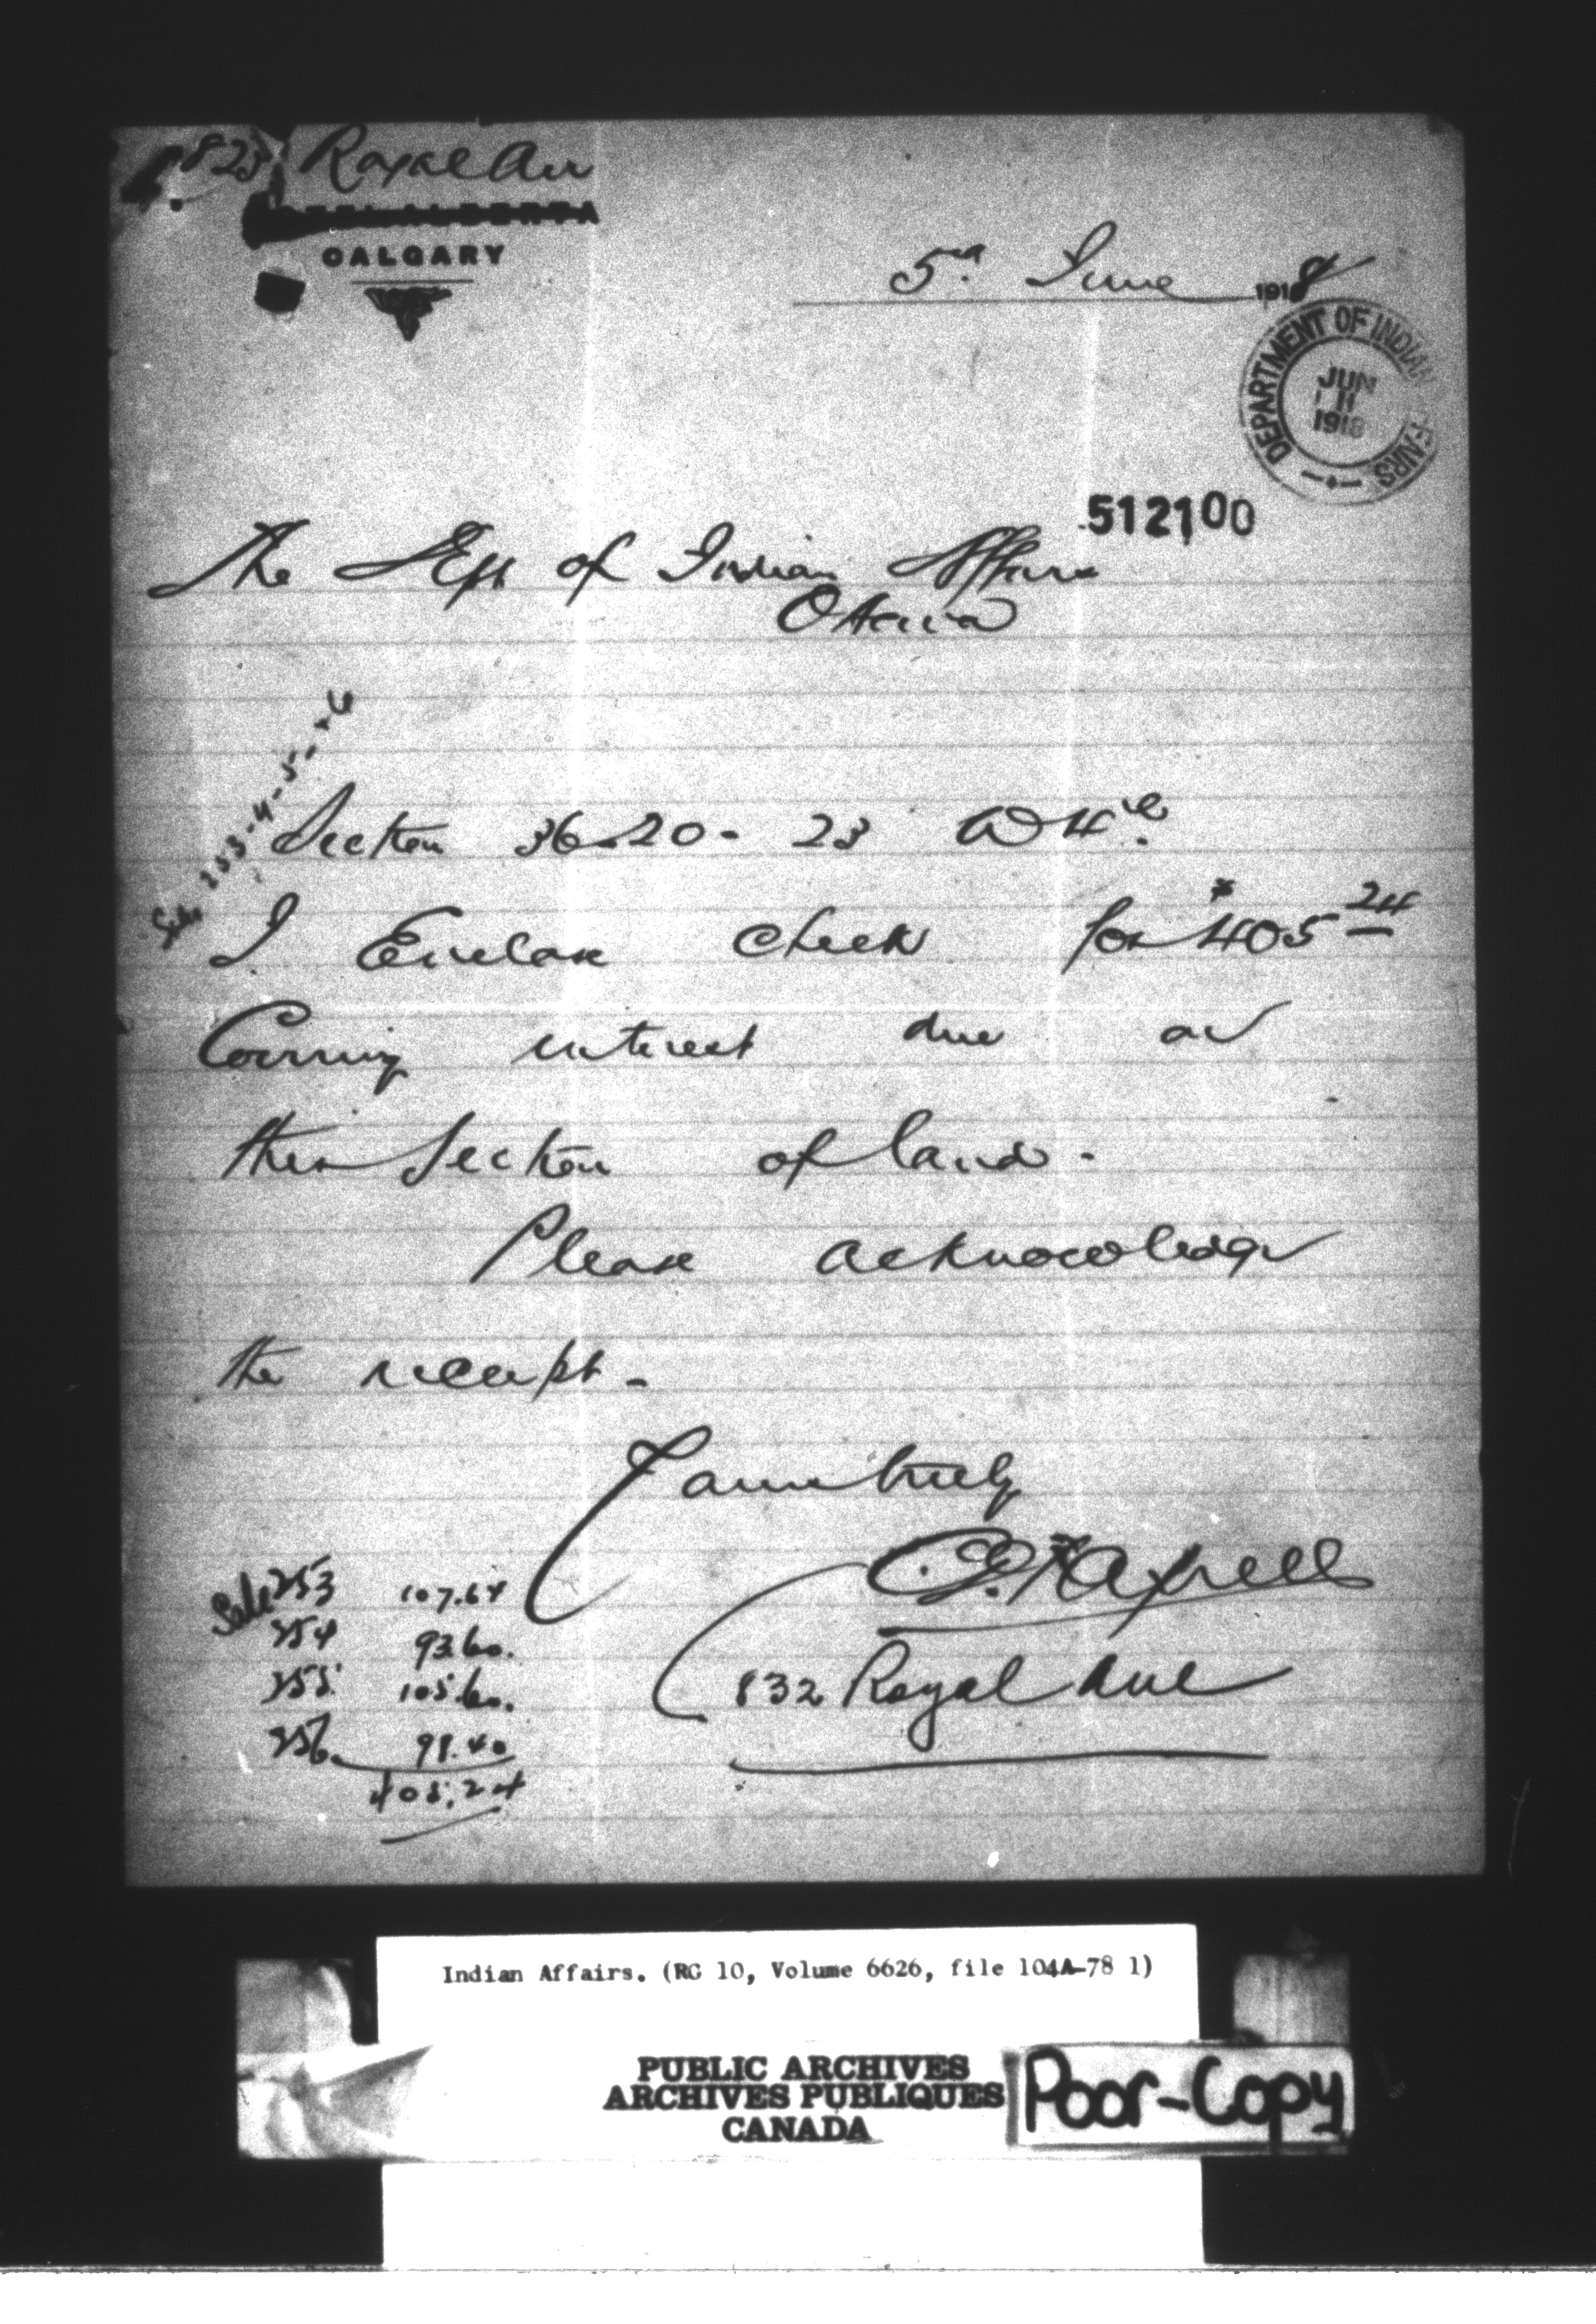 823 Royal Av
HOTEL ALBERTA
CALGARY
5th June 1918
DEPARTMENT OF INDIAN AFFAIRS
JUN 11 1918
512100
The Dept of Indian Affairs
Ottawa
Sale 253-4-5-6
Section 36-20-23 W 4th
I Enclose check for $405 24
Covering interest due on
this Section of land.
Please acknowledge
the receipt.
Yours truly
832 Royal Ave
Sale 253 107.64
254 93.60.
255 105.60.
256 98.40
405.24
Indian Affairs. (RG 10, Volume 6626, file 104A-78 1)
PUBLIC ARCHIVES
ARCHIVES PUBLIQUES
CANADA
Poor-Copy